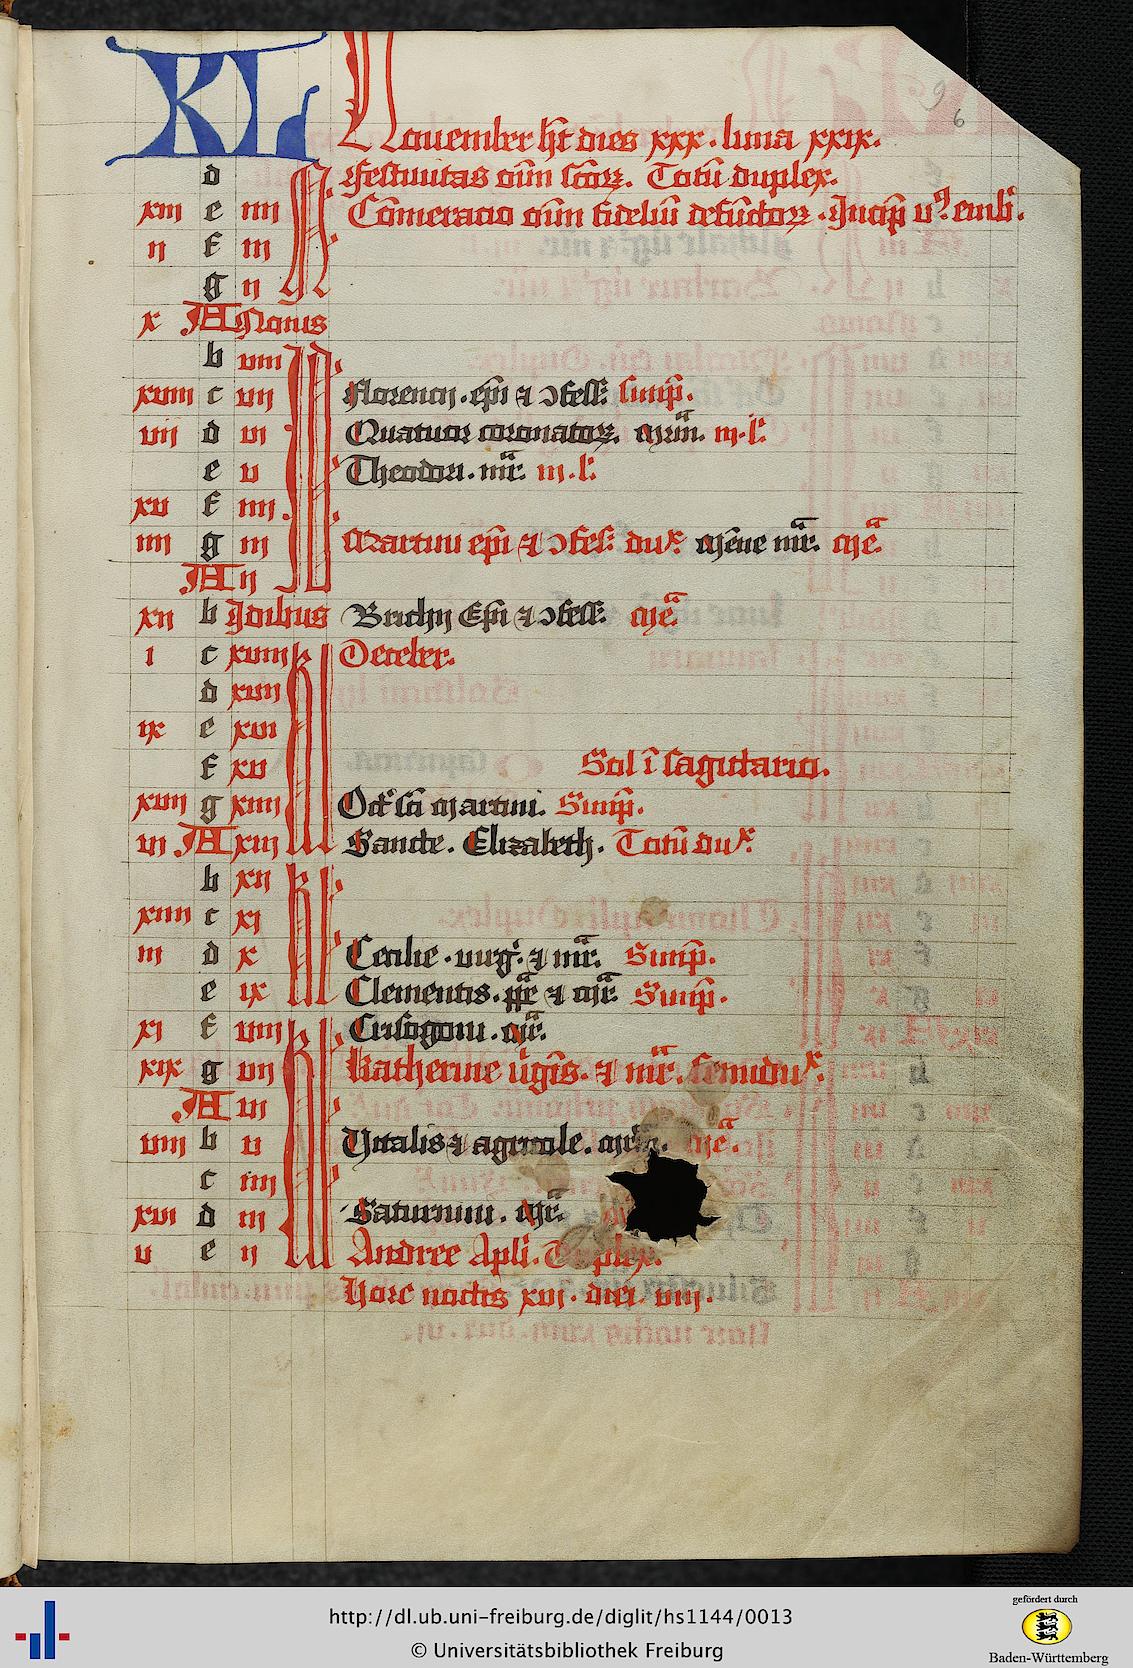 9
6
KL Nouember ht dies xxx. luna xxix.
d Festiuitas oim scoꝝ. Totu duplex.
xiii e iiii N. Comeracio oim fideliu defuctoꝝ. Incip
ii f iii
g ii
x A Nonis
b viii Id.
xviii c vii Florencij. epi ⁊ ɔfess. simp.
vii d vi Quatuor coronatoꝝ. mrm. iii. l.
e v Theodori. mr. iii. l.
xv f iiii
iiii g iii Martini epi ⁊ ɔfes. dux. Mene mr. me.
A ii
xii b Idibus Brichij Epi ⁊ ɔfess. me.
i c xviii kl Deceber.
d xvii
ix e xvi
f xv Sol i sagittario.
xvii g xiiii Oct sci martini. Simp.
vi A xiii Sancte. Elizabeth. Totu dux.
b xii kl.
xiiii c xi
iii d x Cecilie. virg. ⁊ mr. Simp.
e ix Clementis. pp ⁊ mr. Simp.
xi f viii kl. Crisogoni. mr.
xix g vii Katherine virgis. ⁊ mr. semidux.
A vi
viii b v Vitalis ⁊ agricole. mrm. me.
c iiii
xvi d iii Saturnini. mr.
v e ii Andree Apli. Duplex.
Hore noctis xvi. diei. viii.
http://dl.ub.uni-freiburg.de/diglit/hs1144/0013
© Universitätsbibliothek Freiburg
gefördert durch
Baden-Württemberg